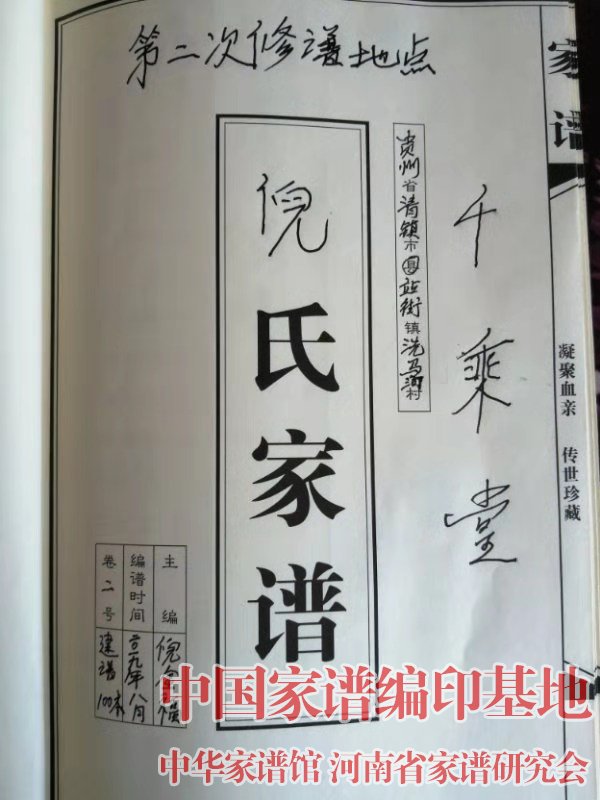 第二次修谱地点
家谱
千乘堂
贵州省清镇市县站街镇洗马河村
倪氏家谱
凝聚血亲 传世珍藏
主编 倪
编谱时间 二〇一九年八月
卷二号 建谱100本
中国家谱编印基地
中华家谱馆 河南省家谱研究会